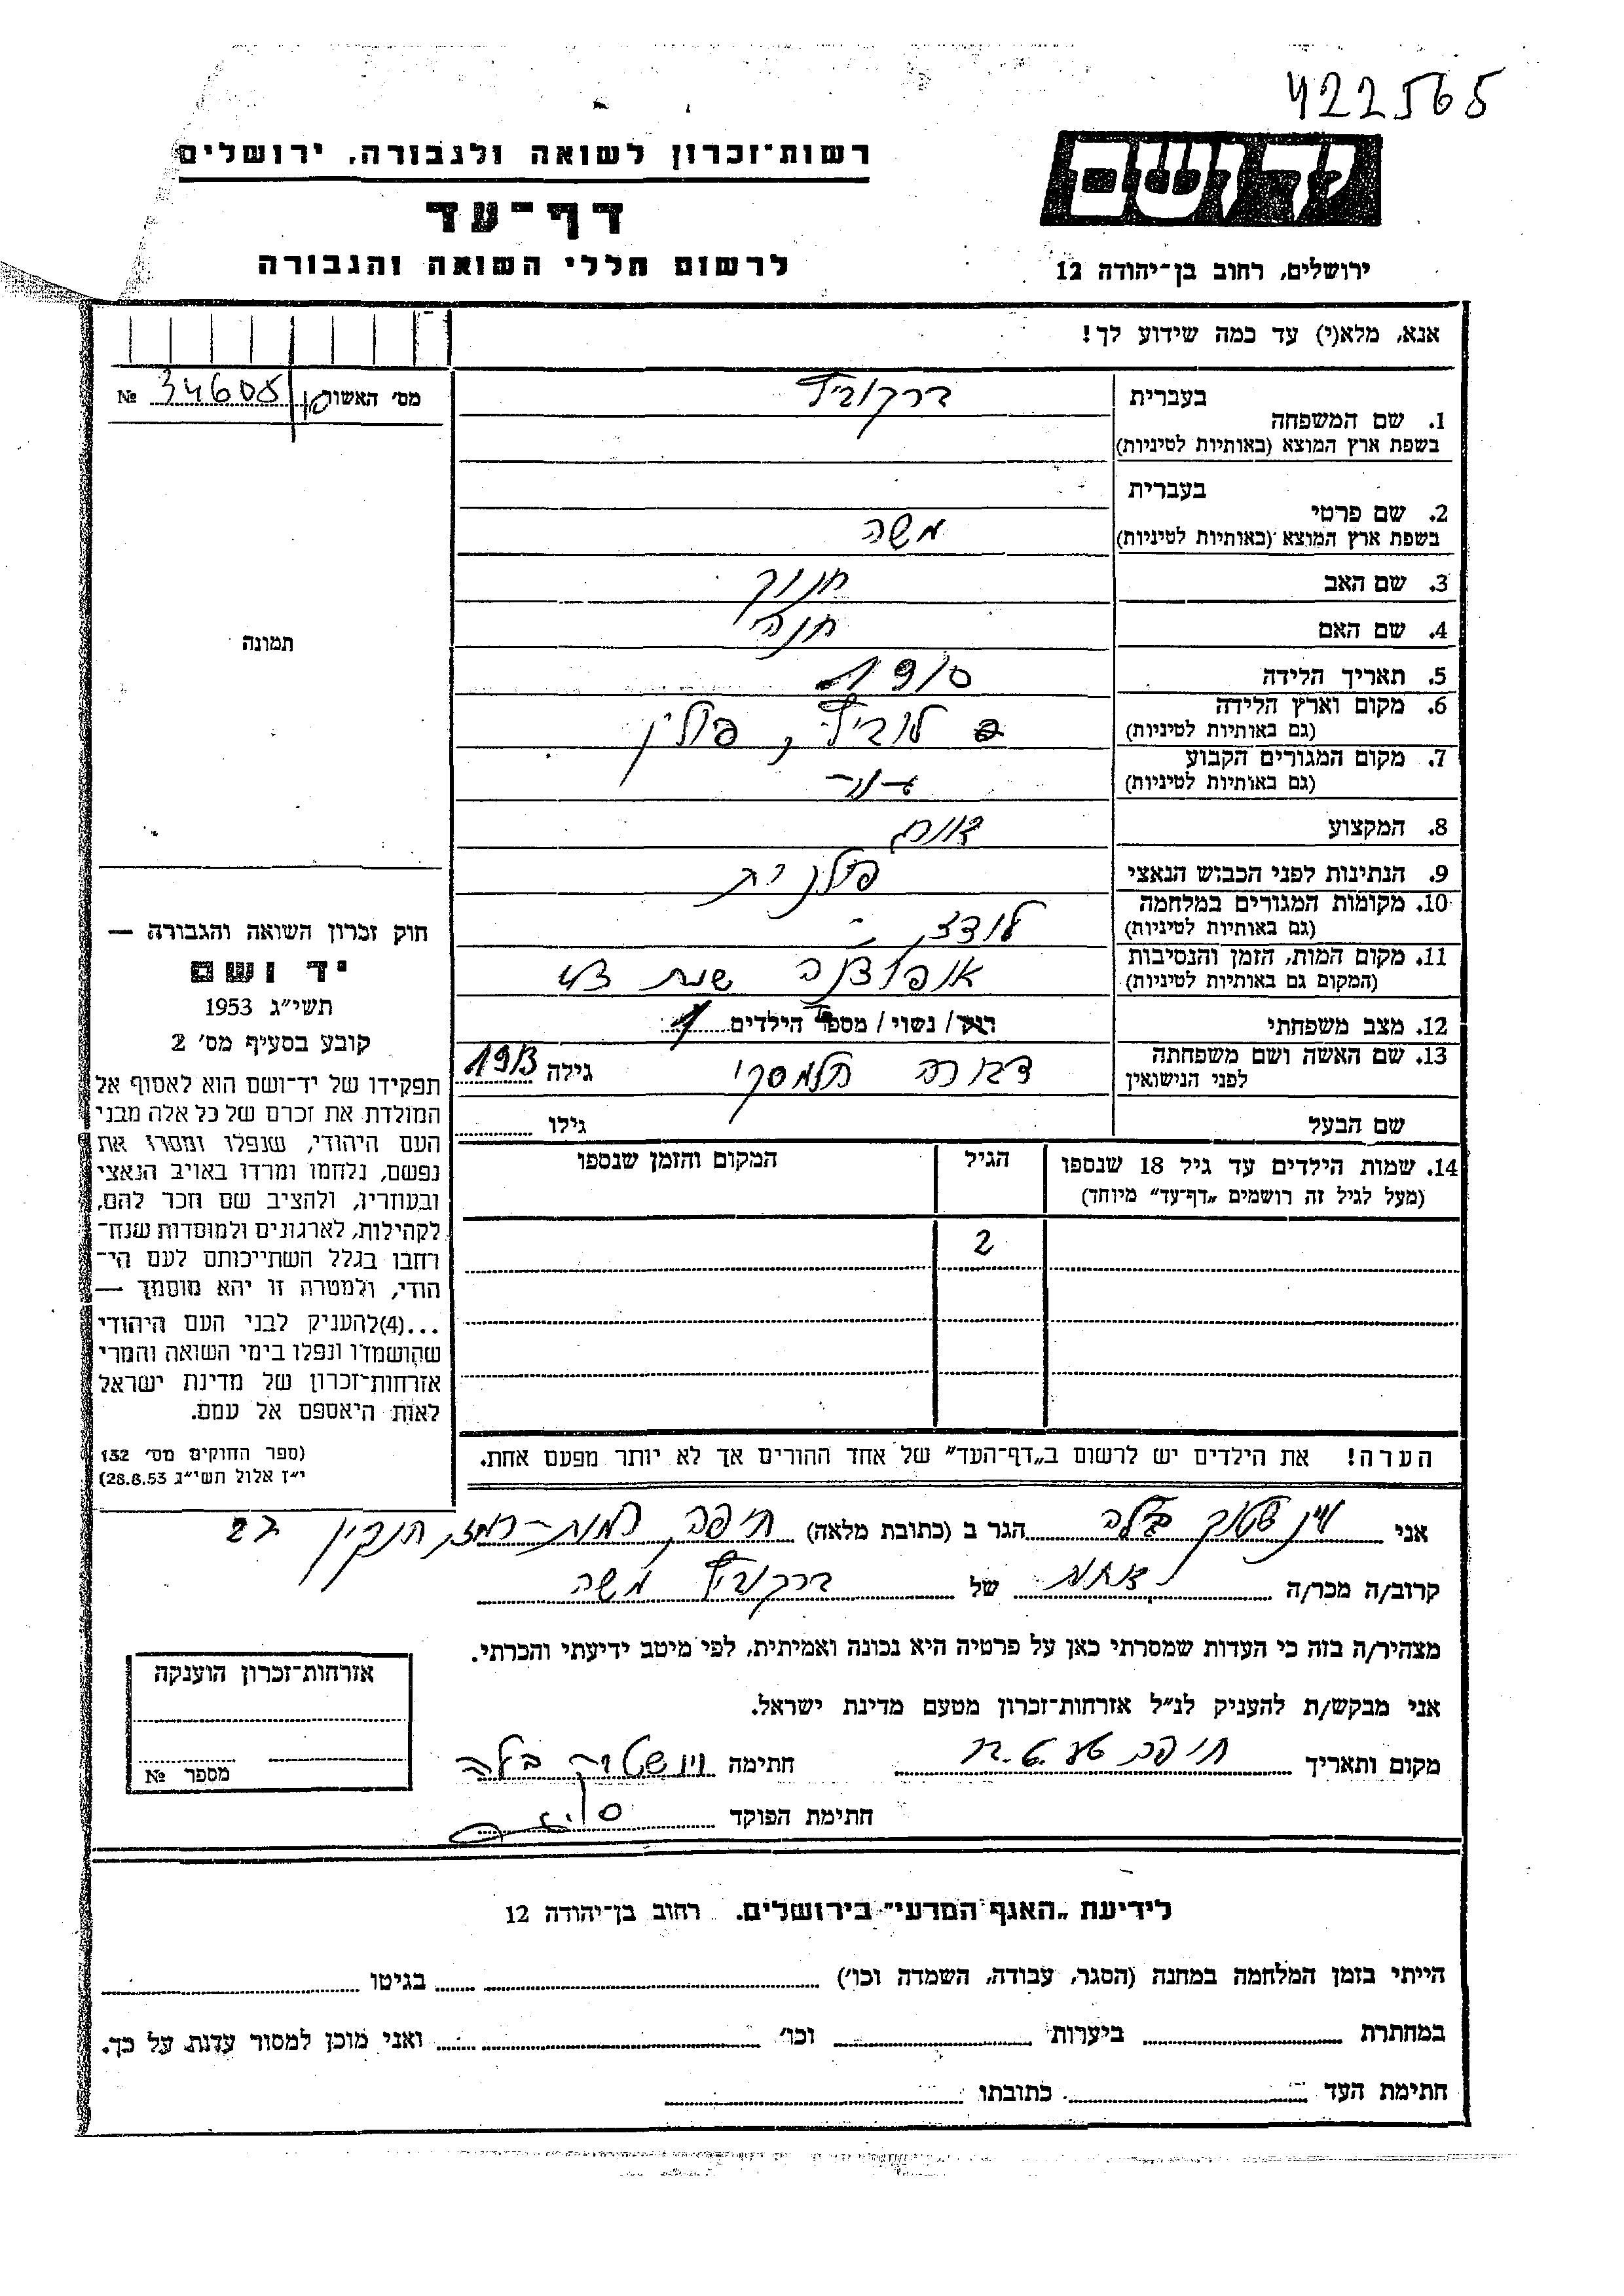 422565
רשות־זכרון לשואה ולגבורה, ירושלים
דף־עד
לרשום חללי השואה והגבורה
יד ושם
ירושלים, רחוב בן־יהודה 12
אנא, מלא(י) עד כמה שידוע לך!
מס' האשור 34608 №
בעברית
1. שם המשפחה
בשפת ארץ המוצא (באותיות לטיניות)
בעברית
2. שם פרטי
בשפת ארץ המוצא (באותיות לטיניות) משה
3. שם האב חנוך
4. שם האם חנה
תמונה
5. תאריך הלידה 1910
6. מקום וארץ הלידה פולין
(גם באותיות לטיניות)
7. מקום המגורים הקבוע
(גם באותיות לטיניות)
8. המקצוע
9. הנתינות לפני הכבוש הנאצי פולנית
10. מקומות המגורים במלחמה לודז
(גם באותיות לטיניות)
11. מקום המות, הזמן והנסיבות שנת
(המקום גם באותיות לטיניות)
12. מצב משפחתי רווק / נשוי / מספר הילדים 1
13. שם האשה ושם משפחתה דבורה גילה 1913
לפני הנישואין
שם הבעל גילו
14. שמות הילדים עד גיל 18 שנספו הגיל המקום והזמן שנספו
(מעל לגיל זה רושמים „דף־עד" מיוחד)
2
הערה! את הילדים יש לרשום ב„דף־העד" של אחד ההורים אך לא יותר מפעם אחת.
חוק זכרון השואה והגבורה —
יד ושם
תשי"ג 1953
קובע בסעיף מס' 2
תפקידו של יד־ושם הוא לאסוף אל
המולדת את זכרם של כל אלה מבני
העם היהודי, שנפלו ומסרו את
נפשם, נלחמו ומרדו באויב הנאצי
ובעוזריו, ולהציב שם וזכר להם,
לקהילות, לארגונים ולמוסדות שנח־
רבו בגלל השתייכותם לעם הי־
הודי, ולמטרה זו יהא מוסמך —
...(4)להעניק לבני העם היהודי
שהושמדו ונפלו בימי השואה והמרי
אזרחות־זכרון של מדינת ישראל
לאות היאספם אל עמם.
(ספר החוקים מס' 132
י"ז אלול תשי"ג 28.8.53)
אני בלה הגר ב (כתובת מלאה) חיפה, רמות־רמז, חנקין
קרוב/ה מכר/ה של משה
מצהיר/ה בזה כי העדות שמסרתי כאן על פרטיה היא נכונה ואמיתית, לפי מיטב ידיעתי והכרתי.
אני מבקש/ת להעניק לנ"ל אזרחות־זכרון מטעם מדינת ישראל.
מקום ותאריך חיפה חתימה בלה
חתימת הפוקד
אזרחות־זכרון הוענקה
מספר №
לידיעת „האגף המדעי" בירושלים. רחוב בן־יהודה 12
הייתי בזמן המלחמה במחנה (הסגר, עבודה, השמדה וכו') בגיטו
במחתרת ביערות וכו' ואני מוכן למסור עדות על כך.
חתימת העד כתובתו